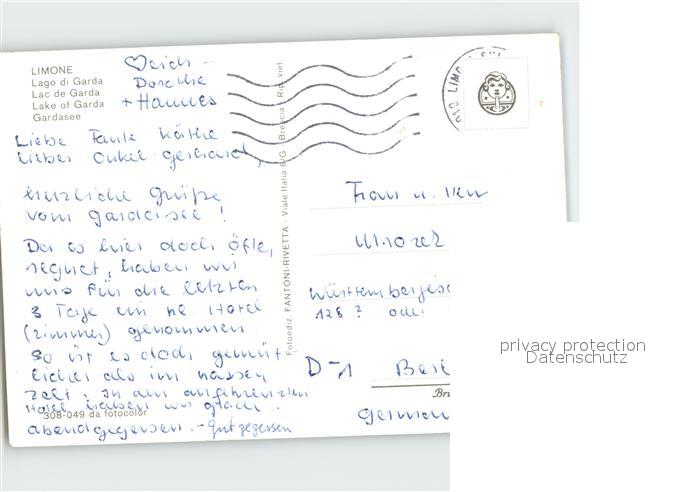 LIMONE
Lago di Garda
Lac de Garda
Lake of Garda
Gardasee
♡eich -
Dorothe
+ Hannes
Liebe Tante Käthe
lieber Onkel Gerhard,
herzliche Grüße
vom Gardasee!
Da es hier doch öfter
regnet, haben wir
uns für die letzten
3 Tage in ne Hotel
(zimmer) genommen
So ist es doch gemüt-
licher als im nassen
Zelt. In dem angrenzenden
Hotel haben wir gleich
abendgegessen. - gut gegessen
308-049 da fotocolor
Fotoediz. FANTONI-RIVETTA - Viale Italia 6/G - Brescia - Rip. viet.
LIMO
Frau u. Herr
Württembergisc
128? oder
D-1 Berl
German
privacy protection
Datenschutz